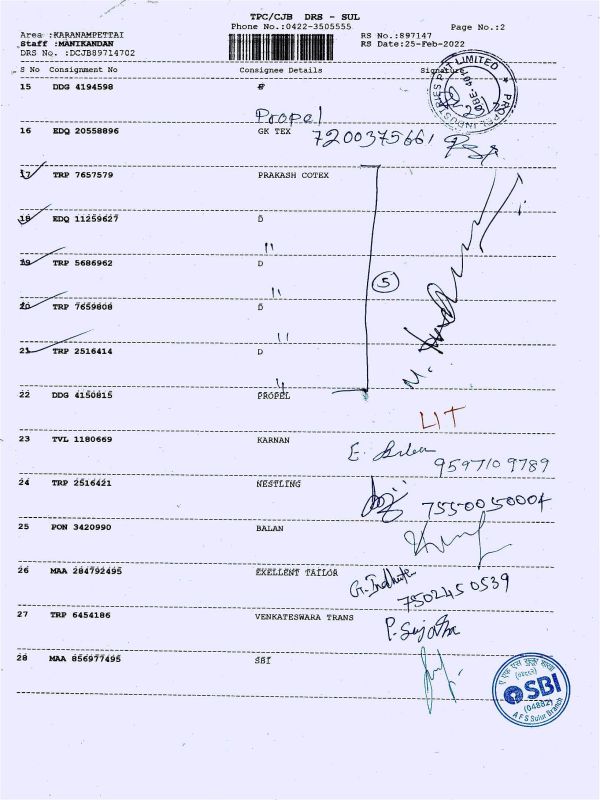 TPC/CJB DRS - SUL
Phone No.:0422-3505555
Page No.:2
Area :KARANAMPETTAI
RS No.:897147
Staff :MANIKANDAN
RS Date:25-Feb-2022
DRS No. :DCJB89714702
S No Consignment No Consignee Details Signature
15 DDG 4194598
Propel
16 EDQ 20558896 GK TEX 7200375661
17 TRP 7657579 PRAKASH COTEX
18 EDQ 11259627 D
"
19 TRP 5686962 D
"
5
20 TRP 7659808 D
"
21 TRP 2516414 D
"
22 DDG 4150815 PROPEL
LIT
23 TVL 1180669 KARNAN
9597109789
24 TRP 2516421 NESTLING
7550050004
25 PON 3420990 BALAN
26 MAA 284792495 EXELLENT TAILOR
7502450539
27 TRP 6454186 VENKATESWARA TRANS
P. Sujatha
28 MAA 856977495 SBI
SBI
(04882)
AFS Sulur Branch